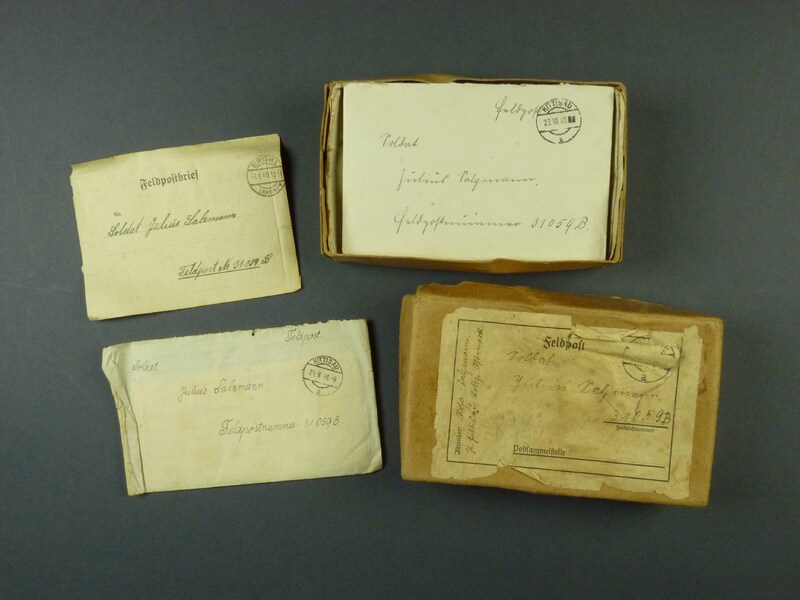 Feldpostbrief
An
Soldat Julius Salzmann
Feldpost Nr 31059 B
Feldpost
HITTISAU
23.VII.40
a
Soldat
Julius Salzmann.
Feldpostnummer 31059 B.
Feldpost.
HITTISAU
a
Soldat
Julius Salzmann.
Feldpostnummer 31059 B.
Feldpost
a
Soldat
Julius Salzmann
31059 B
Feldpostnummer
Postsammelstelle
Absender: